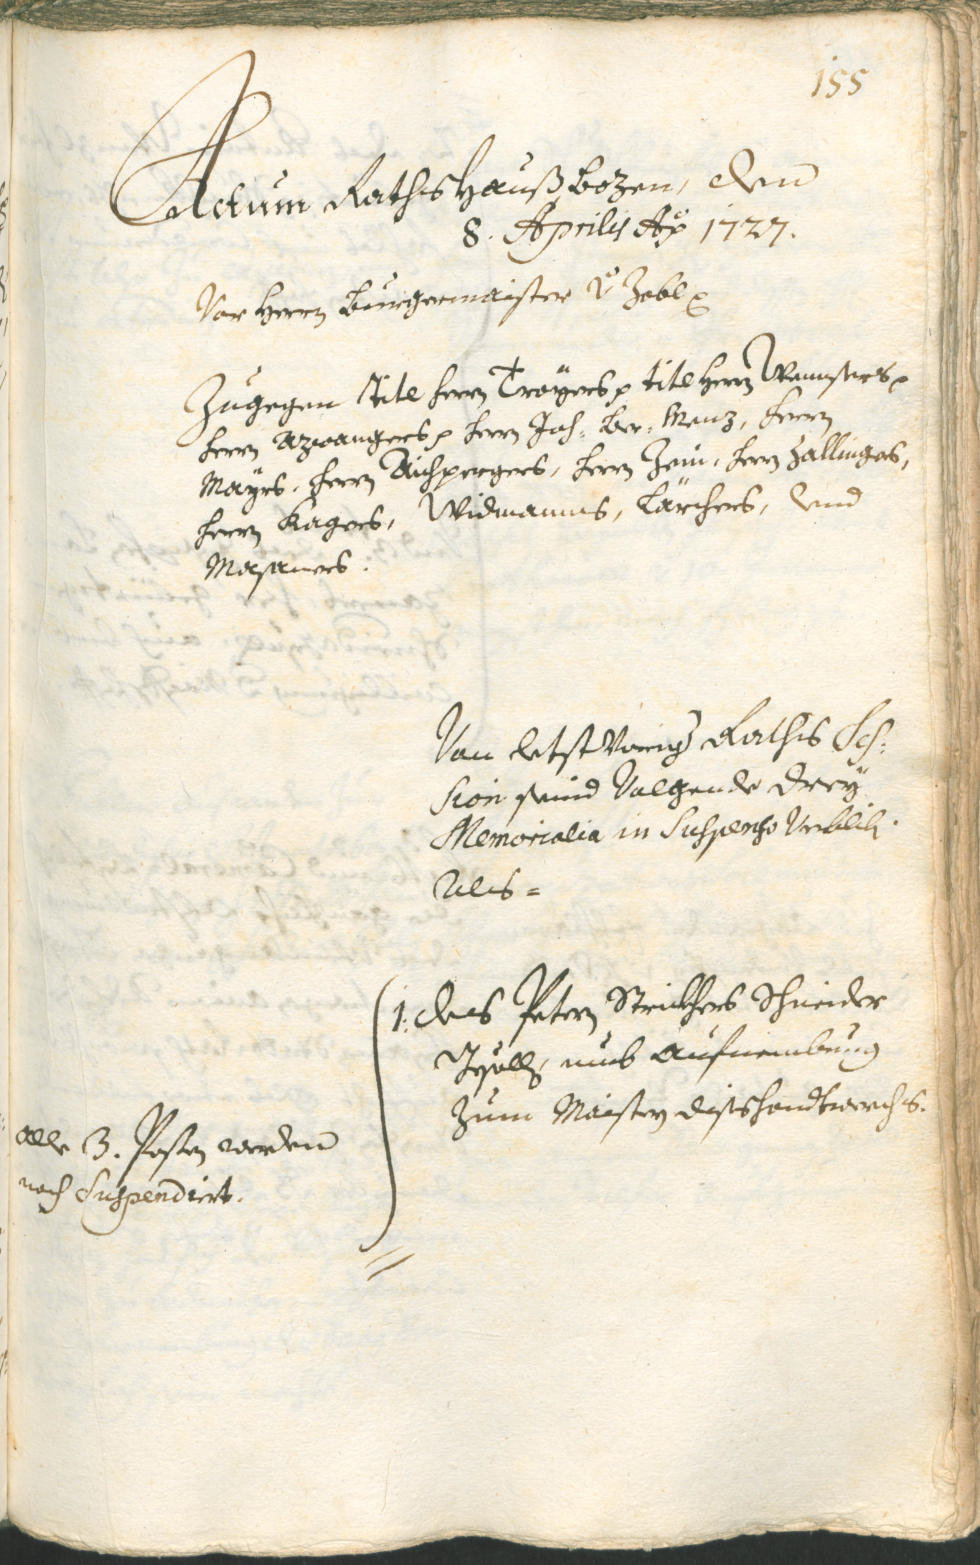 155
Actum Rathshauß Bozen, den
8. Aprilis Ao 1727.
Vor Herrn Burgermaister v Zobl
Zugegen Titl Herrn Troyers, titl Herrn
Herrn Azwangers, Herrn Joh: Ber: Menz, Herrn
Mayrs, Herrn Aichpergers, Herrn Zein, Herrn Zallingers,
Herrn Kagers, Widmanns, Larchers, und
Masaners.
Von letst Vorig Raths Ses:
sion seind Volgende drey
Memorialia in Suspenso Verblib.
Als =
1. des Petern Strickhers Schneider
Gsölln, umb Aufnembung
zum Maister dises handtwerchs.
Alle 3. Posten werden
noch Suspendiert.